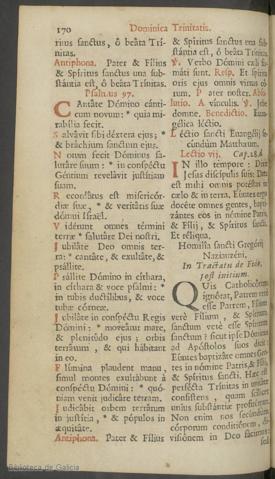 170 Dominica Trinitatis.
ritus sanctus, ô beáta Trí-
nitas.
Antiphona. Pater & Fílius
& Spíritus sanctus una sub-
stántia est, ô beáta Trínitas.
Psalmus 97.
CAntáte Dómino cánti-
cum novum: * quia mi-
rabília fecit.
Salvávit sibi déxtera ejus; *
& bráchium sanctum ejus.
Notum fecit Dóminus sa-
lutáre suum: * in conspéctu
Géntium revelávit justítiam
suam.
Recordátus est misericór-
diæ suæ, * & veritátis suæ
dómui Israël.
Vidérunt omnes términi
terræ * salutáre Dei nostri.
Jubiláte Deo omnis ter-
ra: * cantáte, & exultáte, &
psállite.
Psállite Dómino in cíthara,
in cíthara & voce psalmi: *
in tubis ductílibus, & voce
tubæ córneæ.
Jubiláte in conspéctu Regis
Dómini: * moveátur mare,
& plenitúdo ejus; orbis
terrárum, & qui hábitant
in eo.
Flúmina plaudent manu,
simul montes exultábunt à
conspéctu Dómini: * quó-
niam venit judicáre terram.
Judicábit orbem terrárum
in justítia, * & pópulos in
æquitáte.
Antiphona. Pater & Fílius
& Spíritus sanctus una sub-
stántia est, ô beáta Trínitas.
℣. Verbo Dómini cœli fir-
máti sunt. Resp. Et spíritu
oris ejus omnis virtus eó-
rum. Pater noster. Abso-
lutio. A vínculis. ℣. Jube
domne. Benedictio. Evan-
gélica léctio.
Léctio sancti Evangélij se-
cúndùm Matthæum.
Lectio vij. Cap. 28. d
IN illo témpore: Dixit
Jesus discípulis suis: Data
est mihi omnis potéstas in
cœlo & in terra. Eúntes ergo
docéte omnes gentes, bapti-
zántes eos in nómine Patris,
& Fílij, & Spíritus Sancti.
Et réliqua.
Homilía sancti Gregórij
Nazianzéni.
In Tractatu de Fide,
QUis Catholicórum
ignórat, Patrem verè
esse Patrem, Fílium
verè Fílium, & Spíritum
sanctum verè esse Spíritum
sanctum? sicut ipse Dóminus
ad Apóstolos suos dicit:
Eúntes baptizáte omnes Gen-
tes in nómine Patris, & Fílij,
& Spíritus Sancti. Hæc est
perfécta Trínitas in unitáte
consístens, quam scílicet
uníus substántiæ profitémur.
Non enim nos secúndùm
córporum conditiónem, di-
visiónem in Deo fácimus;
Biblioteca de Galicia